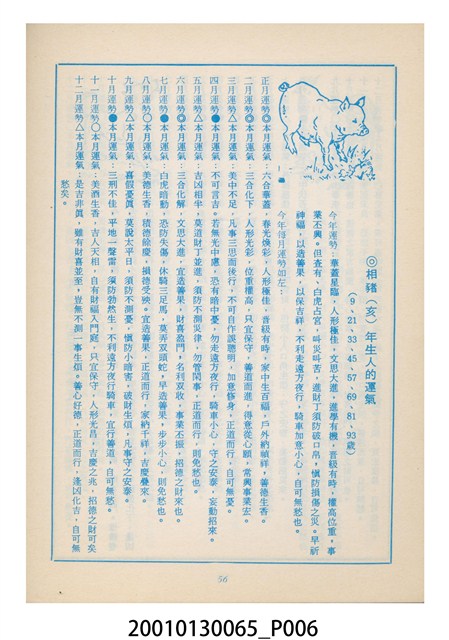 ◎相豬(亥)年生人的運氣
(9、21、33、45、57、69、81、93歲)
今年運勢：華蓋星臨，人形極佳，文思大進，進學有機，晉級有時，權高位重，事
業丕興。但查有、白虎占宮，叫災叫苦，進財丁須防破口吊，慎防損傷之災。早祈
神福，以造善果，以保吉祥。不利走遠方夜行，騎車加意小心，自可無愁也。
今年每月運勢如左：
正月運勢◎本月運氣：六合華蓋，春光煥彩，人形極佳，晉級有時，家中生百福，戶外納禎祥，善德生香。
二月運勢◎本月運氣：三合化下，人形光彩，位重權高，只宜保守，善道而進，得意從心願，常興事業宏。
三月運勢△本月運氣：美中不足，凡事三思而後行，不可自作誤聰明，加意修身，正道而行，自可無憂。
四月運勢●本月運氣：不可言吉。若無光中處，恐有暗中憂，勿走遠方夜行，騎車小心，守之安泰，妄動招來。
五月運勢△本月運氣：吉凶相半，莫道財丁並進，須防不測災律，勿管閑事，正道而行，則免愁也。
六月運勢◎本月運氣：三合化解，文思大進，宜造善果，財喜盈門，名利双收，事業丕振，招德之財來也。
七月運勢●本月運氣：白虎暗動，恐防失傷，休騎三足馬，莫弄双頭蛇，早造善果，步步小心，則免愁也。
八月運勢○本月運氣：美德生香，積德餘慶，損德受殃。宜造善果，正道而行，家納千祥，吉慶疊來。
九月運勢△本月運氣：喜假憂眞，莫說太平日，須防不測憂，慎防小暗害，破財生煩，凡事守之安泰。
十月運勢●本月運氣：三刑不佳，平地一聲雷，須防勃然生，不利遠方夜行騎車，宜行善道，自可無愁。
十一月運勢○本月運氣：美酒生香，吉人天相，自有財福入門庭，只宜保守，人形光昌，吉慶之兆，招德之財可矣
十二月運勢△本月運氣：是吉非眞，雖有財喜並至，豈無不測一事生煩。善心好德，正道而行，逢凶化吉，自可無
愁矣。
56
20010130065_P006